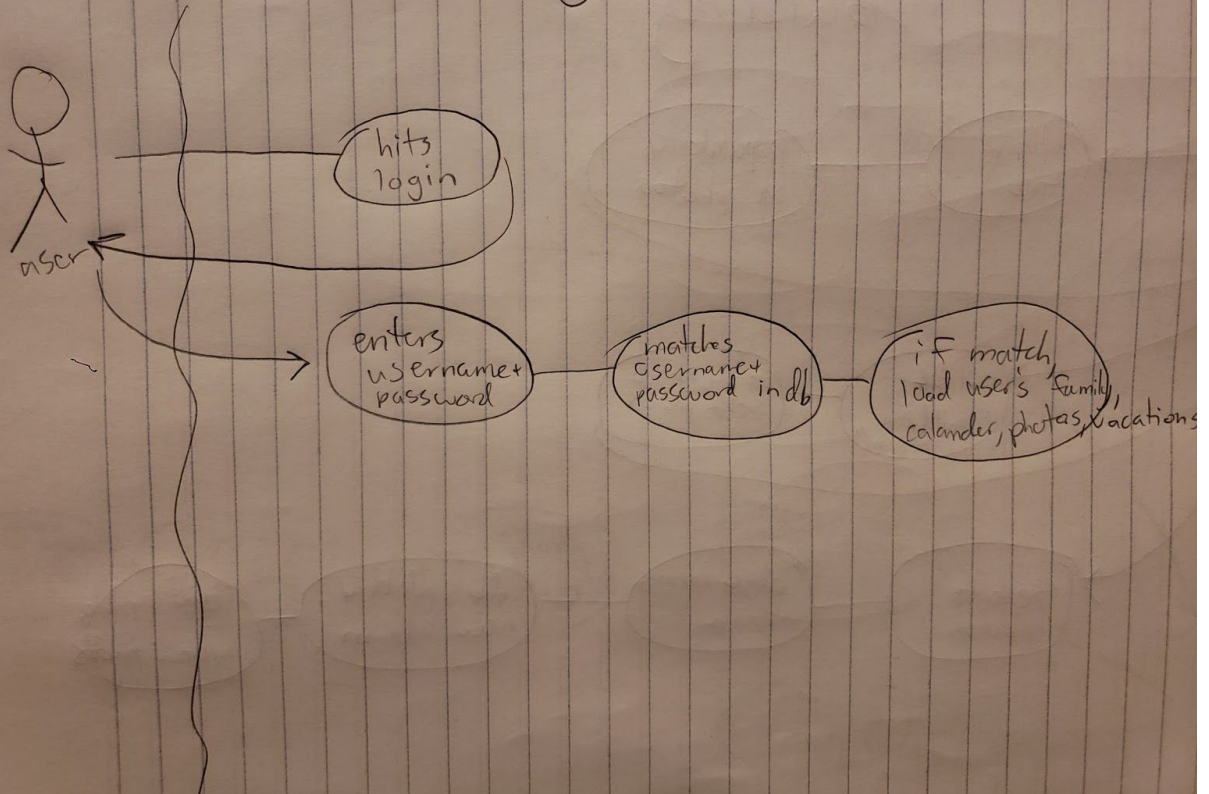 hits
login
user
enters
username+
password
matches
username+
password in db
if match,
load user's family,
calander, photos, vacations